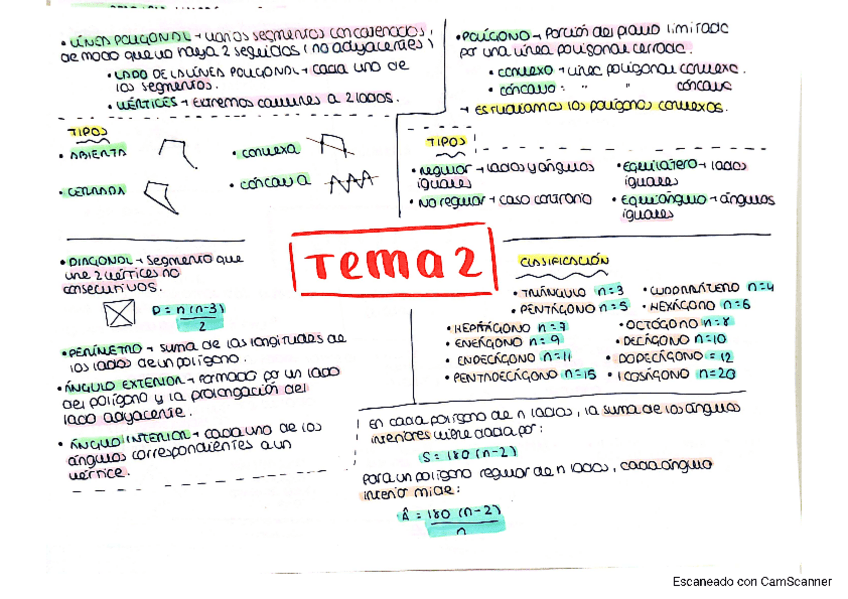 • LÍNEA POLIGONAL → varios segmentos concatenados,
de modo que no haya 2 seguidos (no adyacentes).
• LADO DE LA LÍNEA POLIGONAL → cada uno de
los segmentos.
• VÉRTICES → extremos comunes a 2 lados.
TIPOS
• ABIERTA
• CERRADA
• convexa
• cóncava
• POLÍGONO → Porción del plano limitada
por una línea poligonal cerrada.
• convexo → línea poligonal convexa.
• cóncavo: " " cóncava
→ Estudiamos los polígonos convexos.
TIPOS
• regular → lados y ángulos
iguales
• No regular → caso contrario
• Equilátero → lados
iguales
• Equiángulo → ángulos
iguales
Tema 2
• DIAGONAL → segmento que
une 2 vértices no
consecutivos.
D = n(n-3)
2
• PERÍMETRO → suma de las longitudes de
los lados de un polígono.
• ÁNGULO EXTERIOR → Formado por un lado
del polígono y la prolongación del
lado adyacente.
• ÁNGULO INTERIOR → cada uno de los
ángulos correspondientes a un
vértice.
CLASIFICACIÓN
• TRIÁNGULO n=3 • CUADRILÁTERO n=4
• PENTÁGONO n=5 • HEXÁGONO n=6
• HEPTÁGONO n=7 • OCTÓGONO n=8
• ENEÁGONO n=9 • DECÁGONO n=10
• ENDECÁGONO n=11 • DODECÁGONO =12
• PENTADECÁGONO n=15 • ICOSÁGONO n=20
En cada polígono de n lados, la suma de los ángulos
interiores viene dada por:
S = 180 (n-2)
Para un polígono regular de n lados, cada ángulo
interior mide:
Â = 180 (n-2)
n
Escaneado con CamScanner